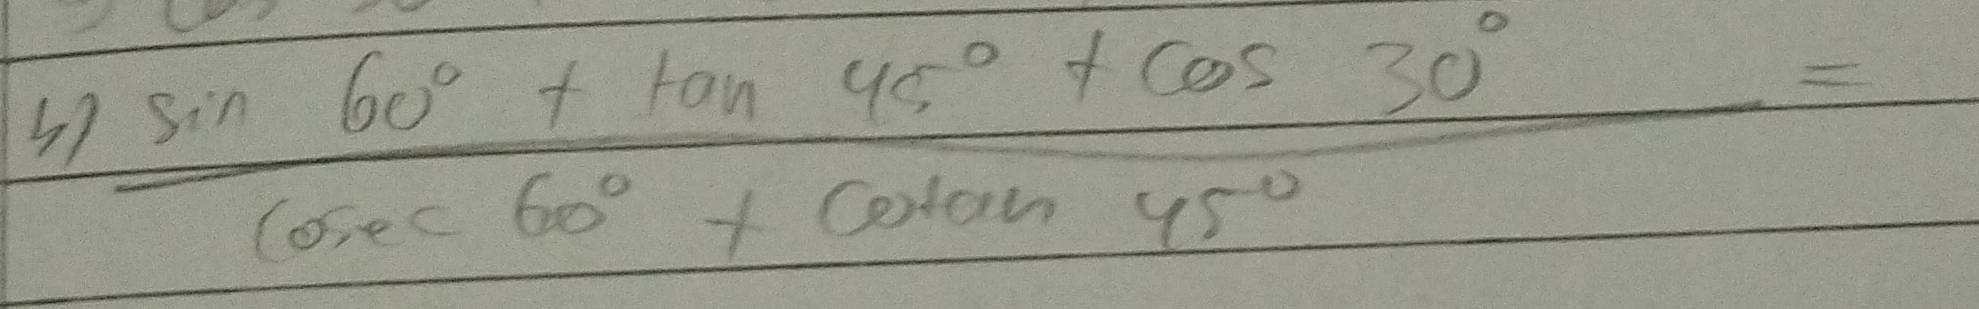 4) sin 60° + tan 45° + cos 30° =
cosec 60° + cotan 45°